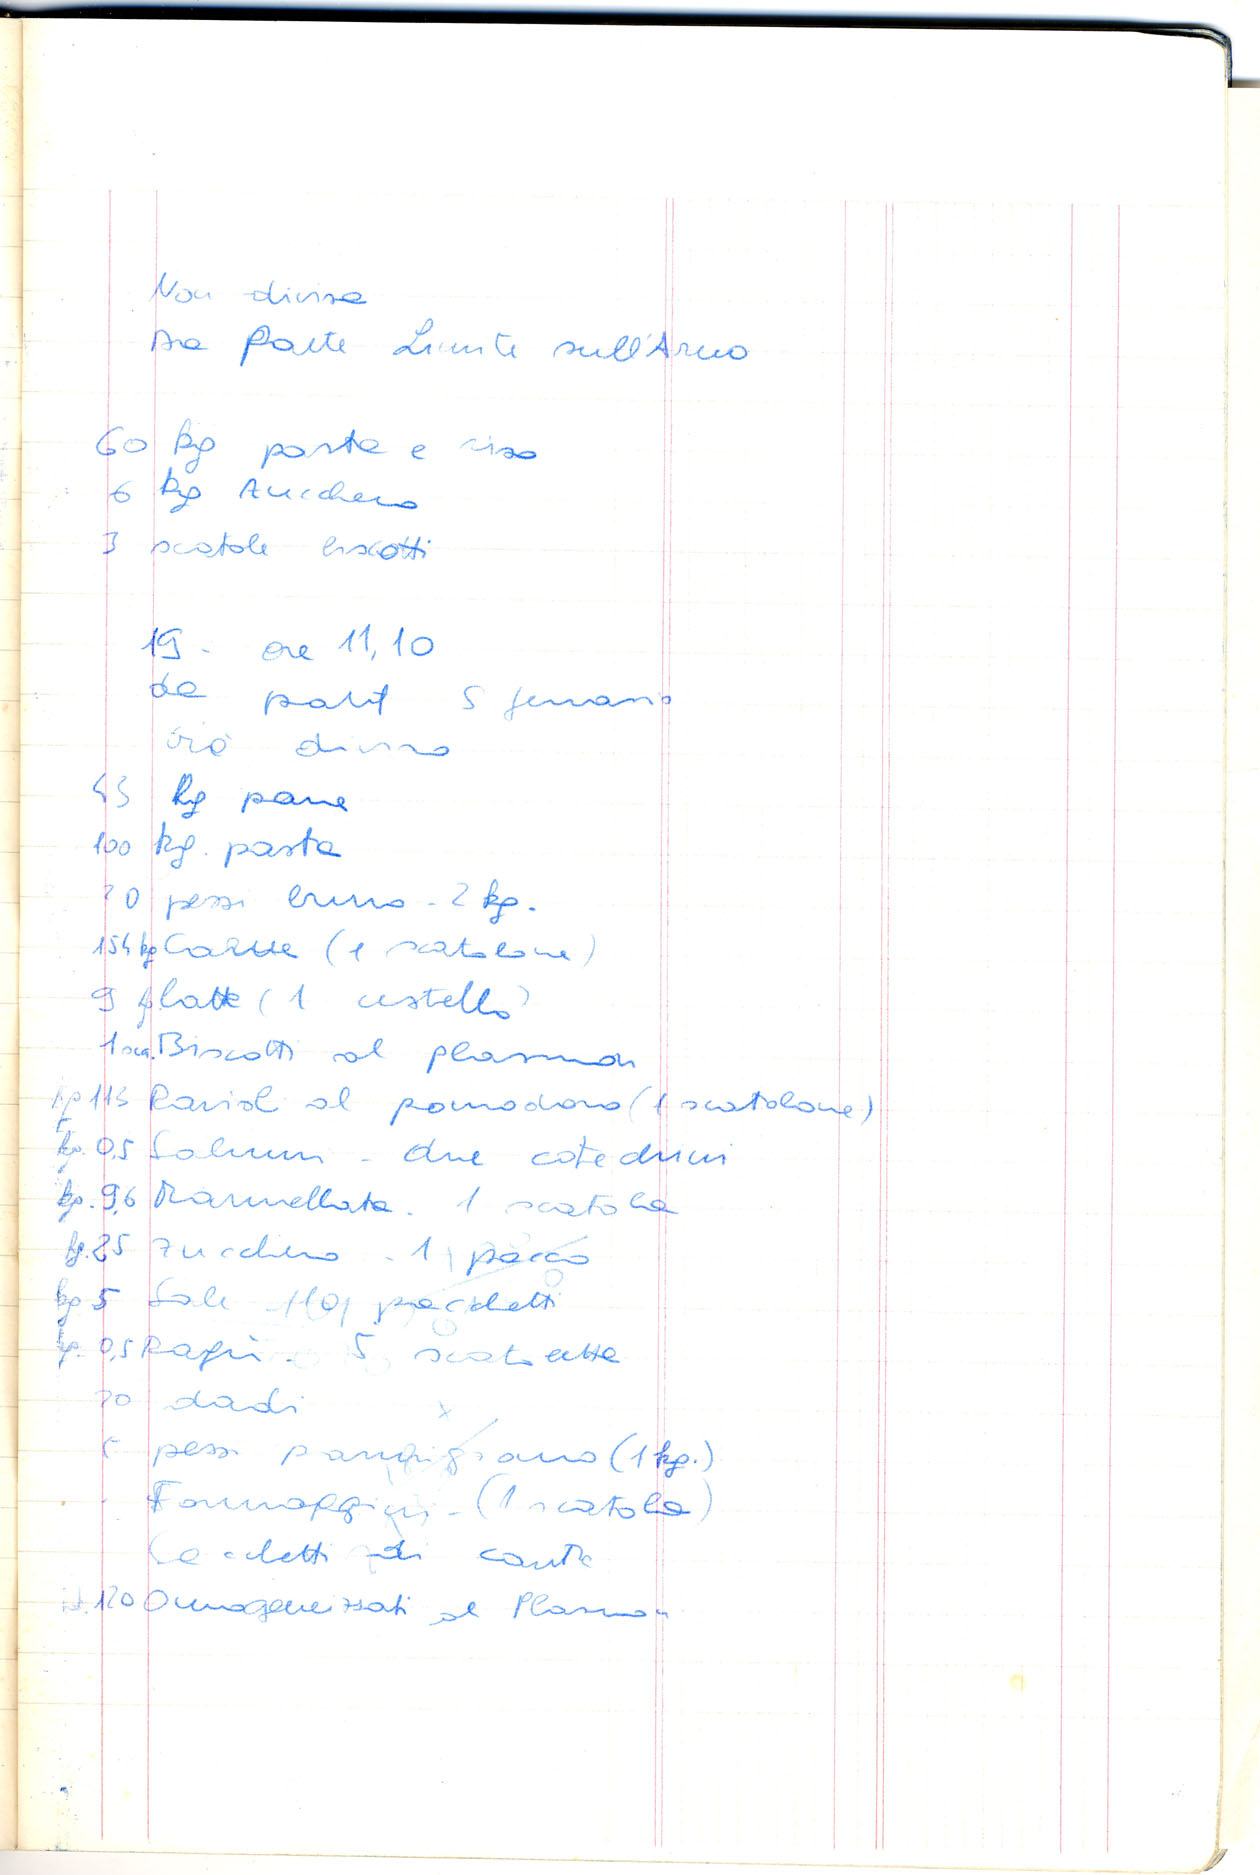 Non divisa
Da Parte Limite sull'Arno
60 kg pasta e riso
6 kg zucchero
3 scatole biscotti
19 - ore 11,10
da part 5 gennaio
già diviso
43 kg pane
100 kg. pasta
20 pezzi burro - 2 kg.
154 kg Carne (1 scatolone)
9 latte (1 cestello)
1 sca. Biscotti al plasmon
kg 115 Ravioli al pomodoro (1 scatolone)
kg. 0,5 Salumi - due cotechini
kg. 9,6 Marmellata. 1 scatola
kg. 25 Zucchero - 1 pacco
kg 5 Sale - 10 pacchetti
kg. 0,5 Ragù - 5 scatolette
20 dadi
pezzi parmigiano (1 kg.)
Formaggini - (1 scatola)
Sacchetti di carta
120 Omogeneizzati al Plasmon